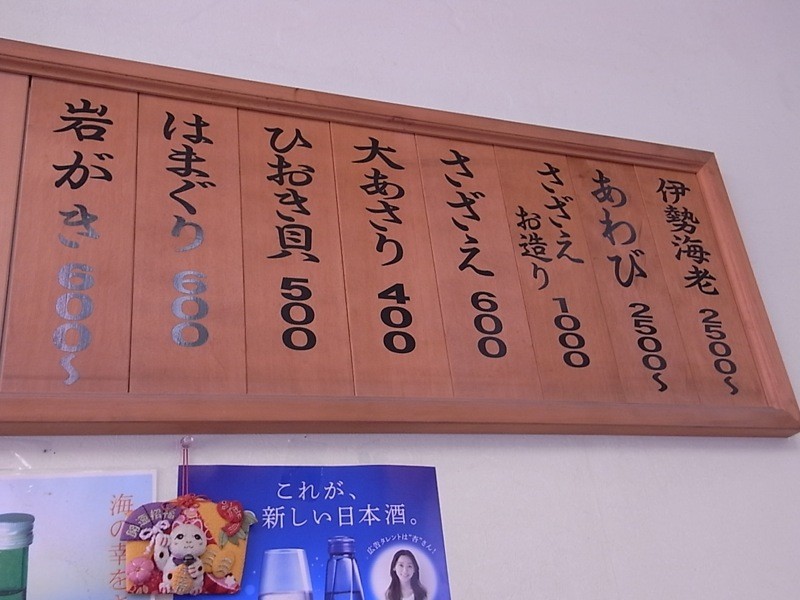 伊勢海老 2500〜
あわび 2500〜
さざえ
お造り 1000
さざえ 600
大あさり 400
ひおき貝 500
はまぐり 600
岩がき 600〜
海の幸を
これが、
新しい日本酒。
広告タレントは"杏"さん!
開運招福